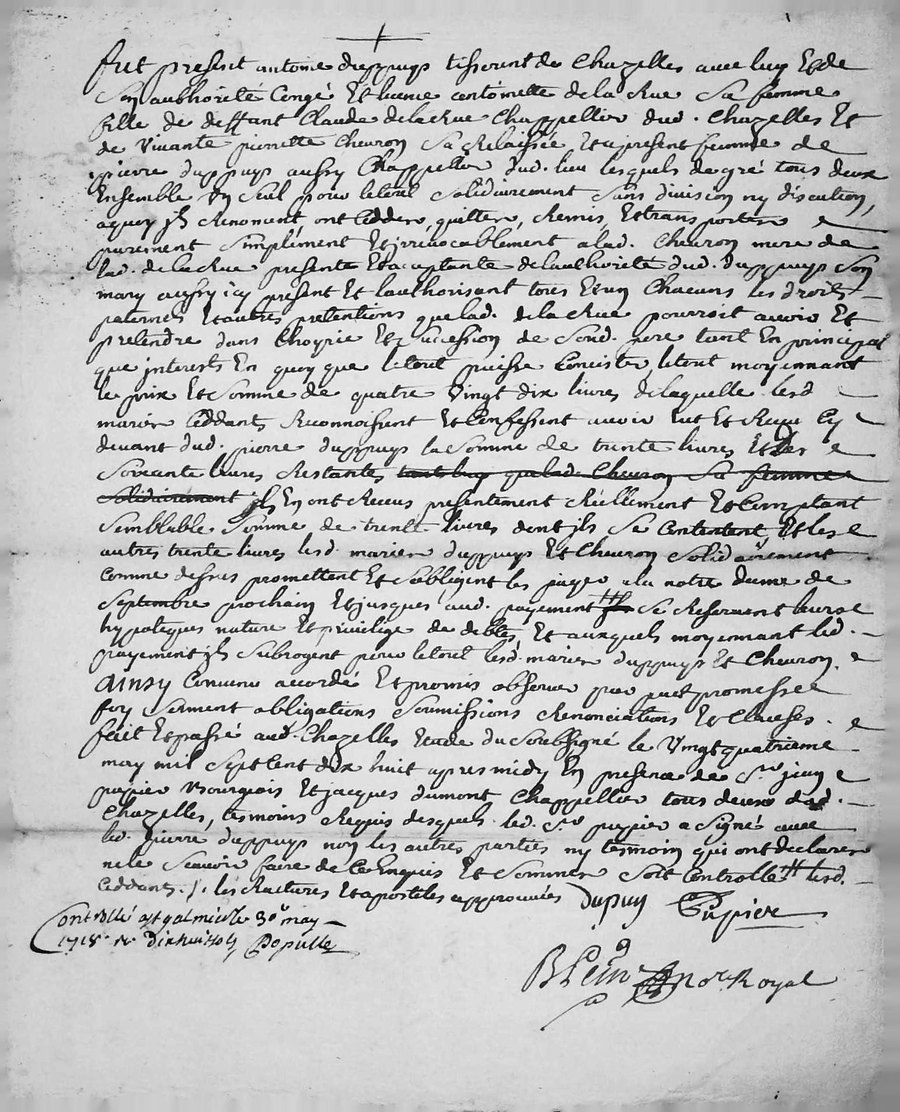 fut present antoine duppuys tisserent de Chazelles avec luy Et de
Son authorité Congé Et licence antoinette dela Rue Sa femme
fille de deffant Claude dela Rue Chappellier dud. Chazelles Et
de Vivante pierrette Chevron Sa Relaissée Et a present femme de
pierre duppuys aussy Chappellier dud. lieu lesquels de gré tous deux
Ensemble Un Seul pour letout Solidairement Sans division ny discution,
aquoy jls Renoncent ont Ceddés, quittés, Remis, Et transportés
purement Simplement Et jrrevocablement a lad. Chevron mere de
lad. dela Rue presente Et acceptante delauthorité dud. duppuys Son
mary aussy icy present Et lauthorisant tous Et un Chacuns les droits
paternels Et autres pretentions que lad. dela Rue pourroit avoir Et
pretendre dans Lhoyrie Et Succession de Sond. pere tant En principal
que interests En quoy que letout puisse Concister letout moyennant
le prix Et Somme de quatre Vingt dix livres delaquelle lesd.
mariés Ceddants Reconnoissent Et Confessent avoir Eut Et Receu Cy
devant dud. pierre duppuys la Somme de trente livres Et des
Soixante livres Restants tant luy que lad. Chevron Sa femme
Solidairement jls En ont Receus presentement Réellement Et Comptant
Semblable Somme de trente livres dont jls Se Contentent, Et les
autres trente livres lesd. mariés duppuys Et Chevron Solidairement
Comme dessus promettent Et Sobligent les payer a la notre dame de
Septembre prochain Et jusques aud. payement jls Se Reservent leurs
hypoteques nature Et privilege de debtes Et auxquels moyennant led.
payement jls Subrogent pour letout lesd. mariés duppuys Et Chevron.
Ainsy Convenu accordé Et promis observer par pact promesse
foy Serment obligations Soumissions Renonciations Et Clauses.
fait Et passé aud. Chazelles Etude du Soubsigné le Vingt quatrieme
may mil Sept Cent dix huit apres midy En presence de Sr jean
pupier Bourgeois Et jacques dumont Chappellier tous deux dud.
Chazelles, tesmoins Requis desquels led. Sr pupier a Signé avec
led. pierre duppuys non les autres parties ny tesmoin qui ont declarés
ne le Scavoir faire de Ce Enquis Et Sommés Soit Controllé lesd.
Ceddants /. les Ratures Et apostiles approuvées Dupuy Pupier
Controllé a st galmier le 30e may
1718 R dix huit sols Depuille
Blein Nore Royal